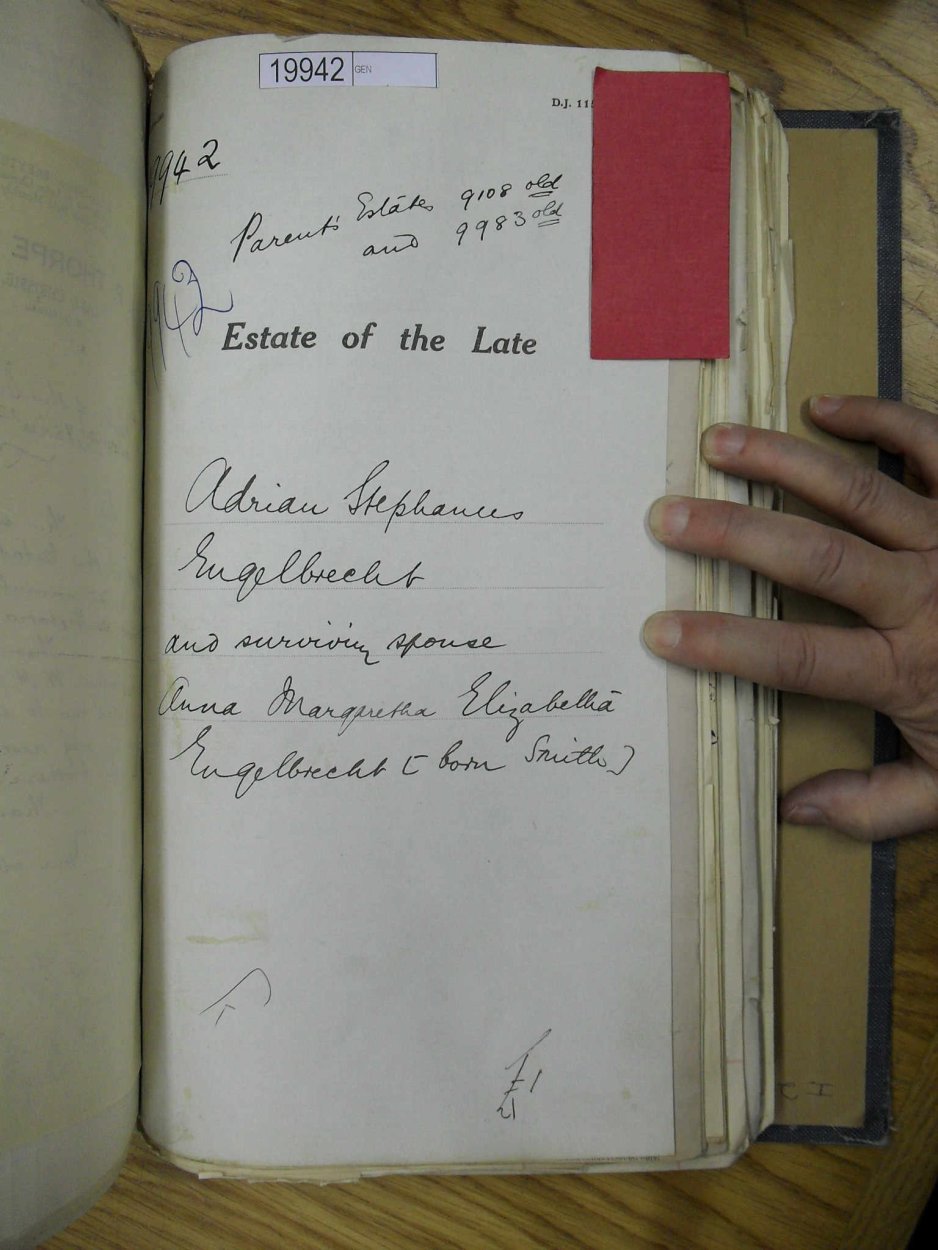 19942 GEN
D.J. 11
9942
Parent's Estates 9108 old
and 9983 old
942
Estate of the Late
Adrian Stephanus
Engelbrecht
and surviving spouse
Anna Margaretha Elizabetha
Engelbrecht [born Smith]
THORPE